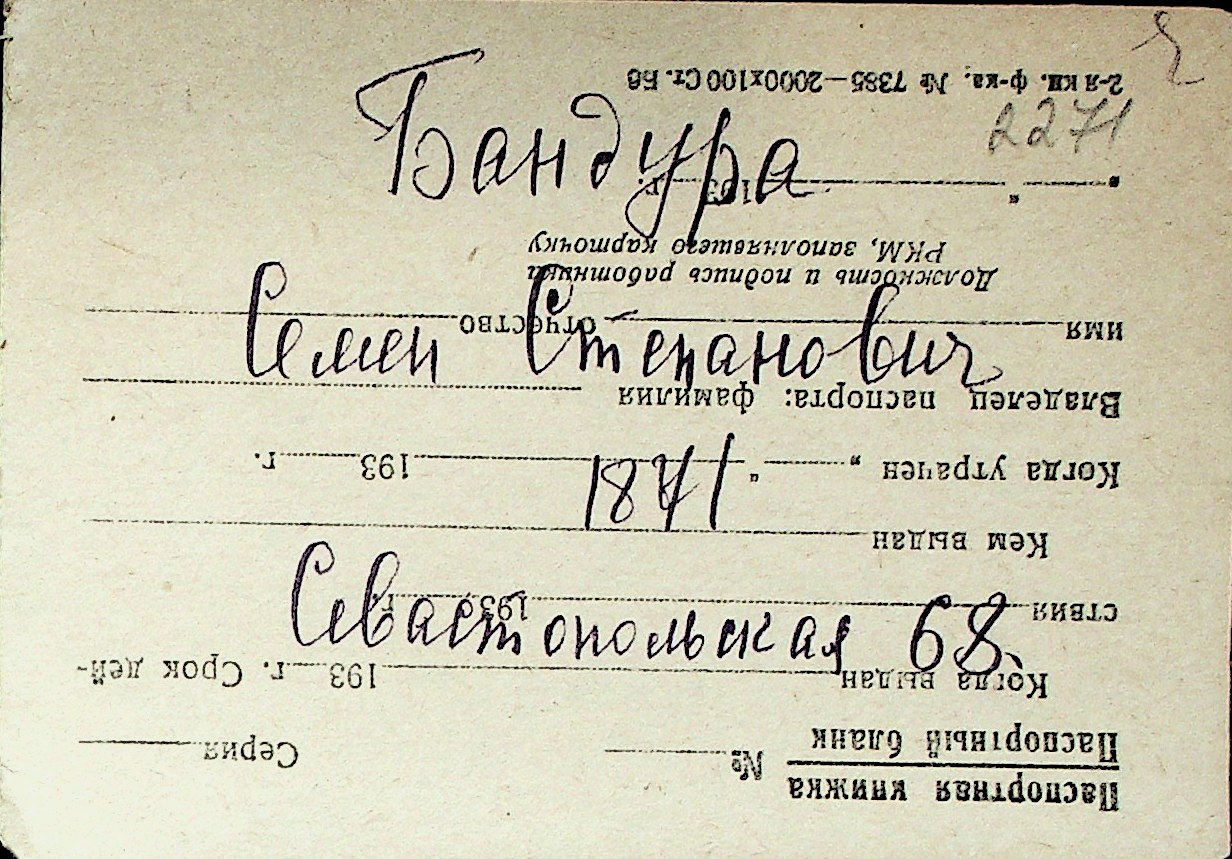 Бандура
Семен Степанович
1871
Севастопольская 68.
2271
Паспортная книжка
Паспортный бланк
№ Серия
Когда выдан 193 г. Срок дей-
ствия 193 г.
Кем выдан
Когда утрачен „ “ 193 г.
Владелец паспорта: фамилия
имя отчество
Должность и подпись работника
РКМ, заполнявшего карточку
„ “ 193 г.
2-я кн. ф-ка. № 7385—2000х100 Ст. Бв